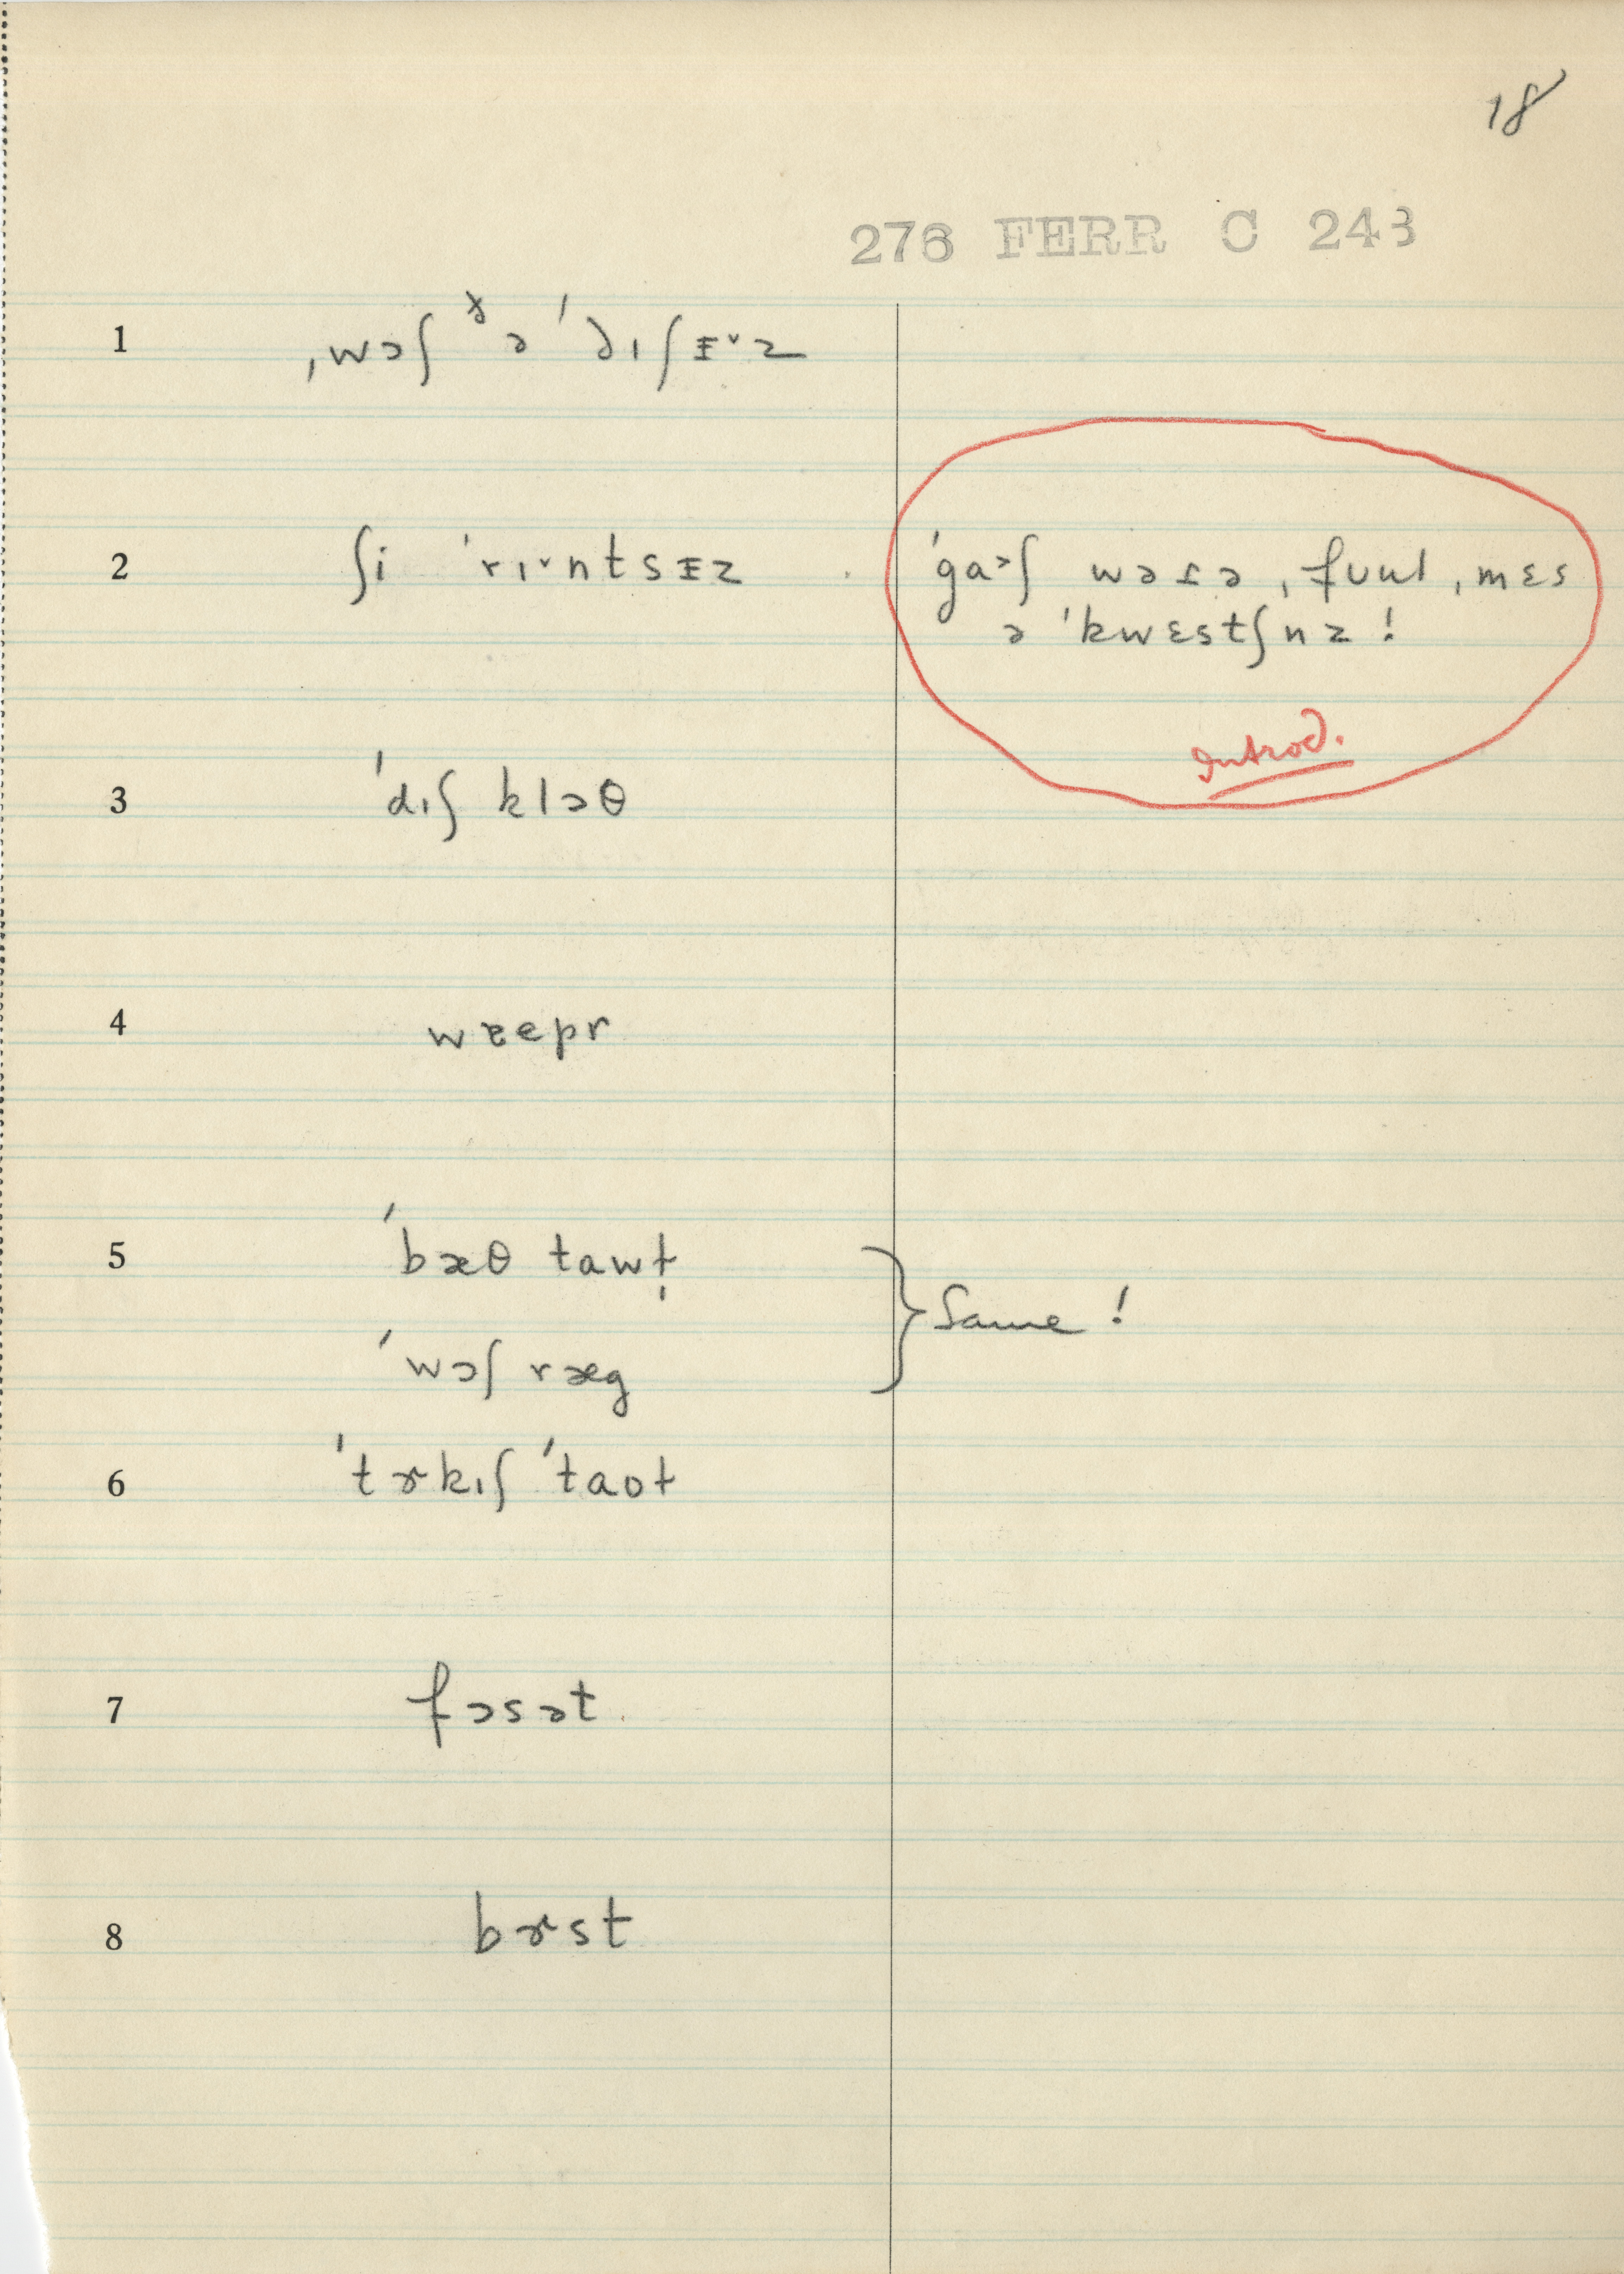 18
276 FERR C 243
1 ˌwɔʃ ðə ˈdɪʃɪ̵ˇz
2 ʃi ˈrɪˇntsɪ̵z
ˈga˃ʃ wəɾə ˌfʊul ˌmɛs
ə ˈkwɛstʃnz!
Introd.
3 ˈdɪʃ klɔθ
4
5 ˈbæθ tawɫ̩
ˈwɔʃ ræg
Same!
6 ˈtɝkɪʃ ˈtaʊɫ
7 fɔsət
8 bɝst